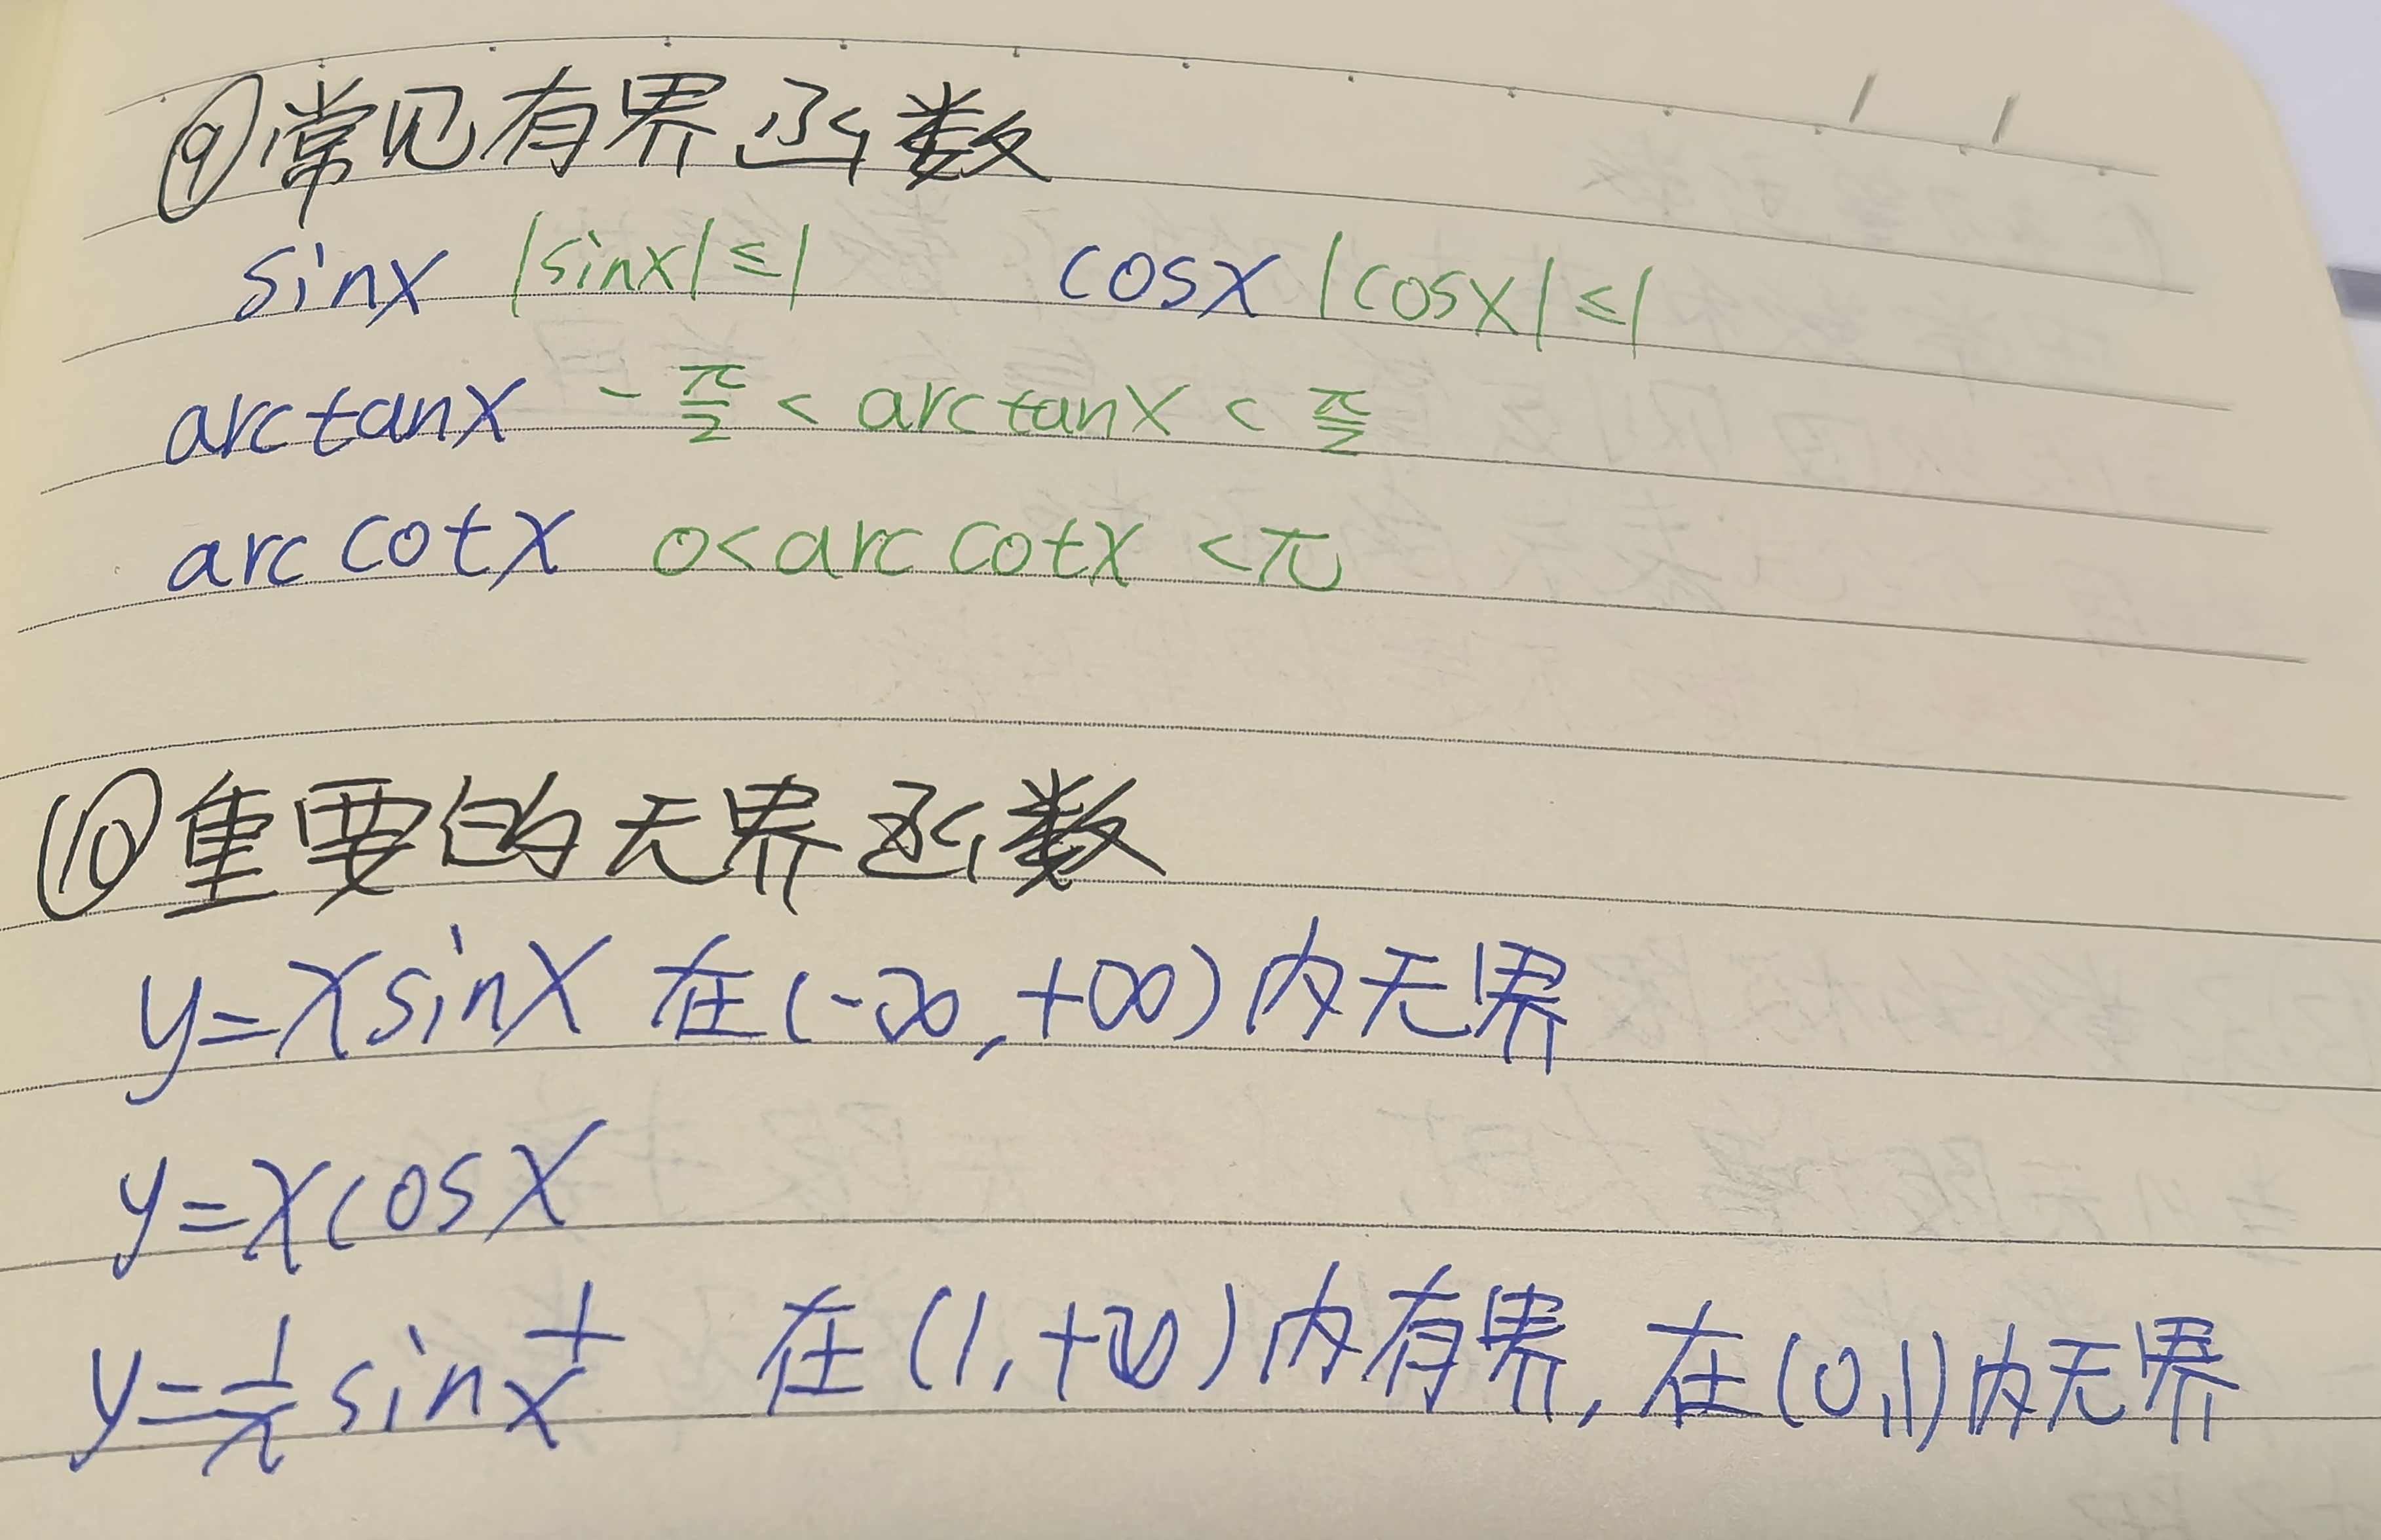 ⑨常见有界函数
sinx |sinx|≤1 cosx |cosx|≤1
arctanx -π/2 < arctanx < π/2
arccotx 0<arccotx<π
⑩重要的无界函数
y=xsinx 在(-∞,+∞)内无界
y=xcosx
y=1/x sin 1/x 在(1,+∞)内有界,在(0,1)内无界